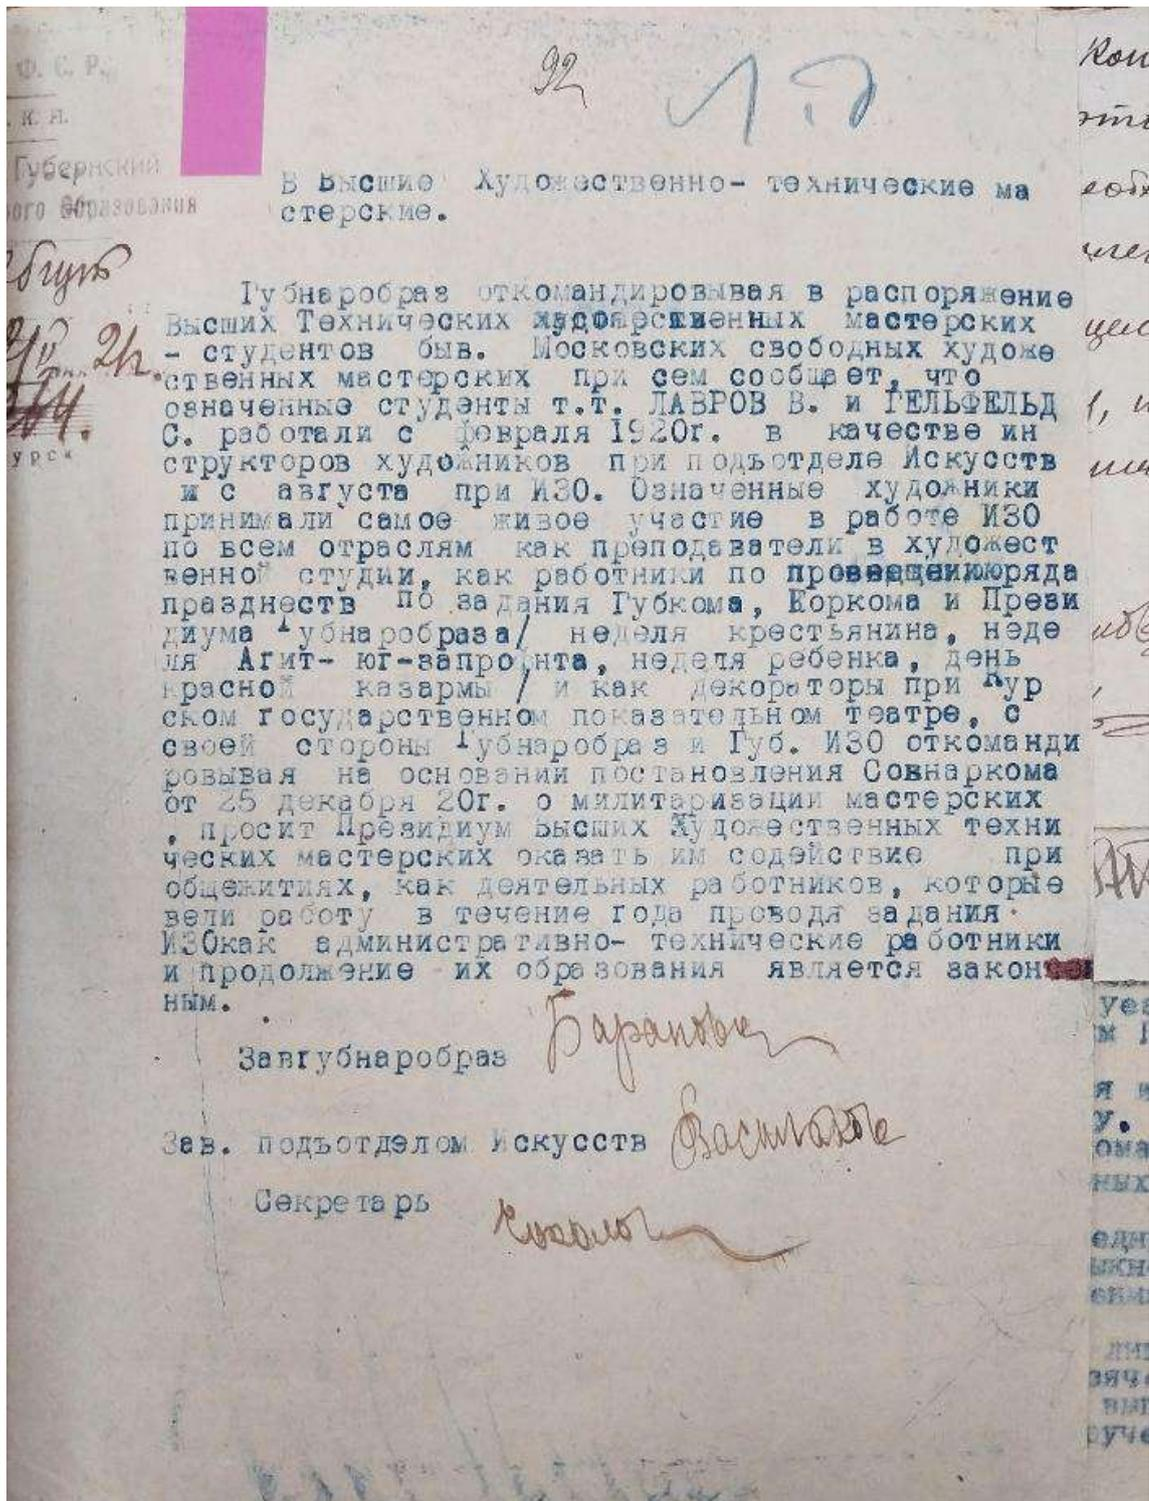 92
Ф. С. Р.
К. П.
Губернский
ного Образования
В Высшие Художественно- технические ма
стерские.
Губнаробраз откомандировывая в распоряжение
Высших Технических мастерских
- студентов быв. Московских свободных художе
ственных мастерских при сем сообщает, что
означенные студенты т.т. ЛАВРОВ В. и ГЕЛЬФЕЛЬД
С. работали с февраля 1920г. в качестве ин
структоров художников при подъотделе Искусств
и с августа при ИЗО. Означенные художники
принимали самое живое участие в работе ИЗО
по всем отраслям как преподаватели в художест
венной студии, как работники по ряда
празднеств по задания Губкома, Горкома и Прези
диума Губнаробраза/ неделя крестьянина, неде
ля Агит- юг-запрофнта, неделя ребенка, день
красной казармы / и как декораторы при Кур
ском государственном показательном театре, с
своей стороны Губнаробраз и Губ. ИЗО откоманди
ровывая на основании постановления Совнаркома
от 25 декабря 20г. о милитаризации мастерских
, просит Президиум Высших Художественных техни
ческих мастерских оказать им содействие при
общежитиях, как деятельных работников, которые
вели работу в течение года проводя задания
ИЗОкак административно- технические работники
и продолжение их образования является закон
ным.
Завгубнаробраз
Зав. подъотделом Искусств
Секретарь